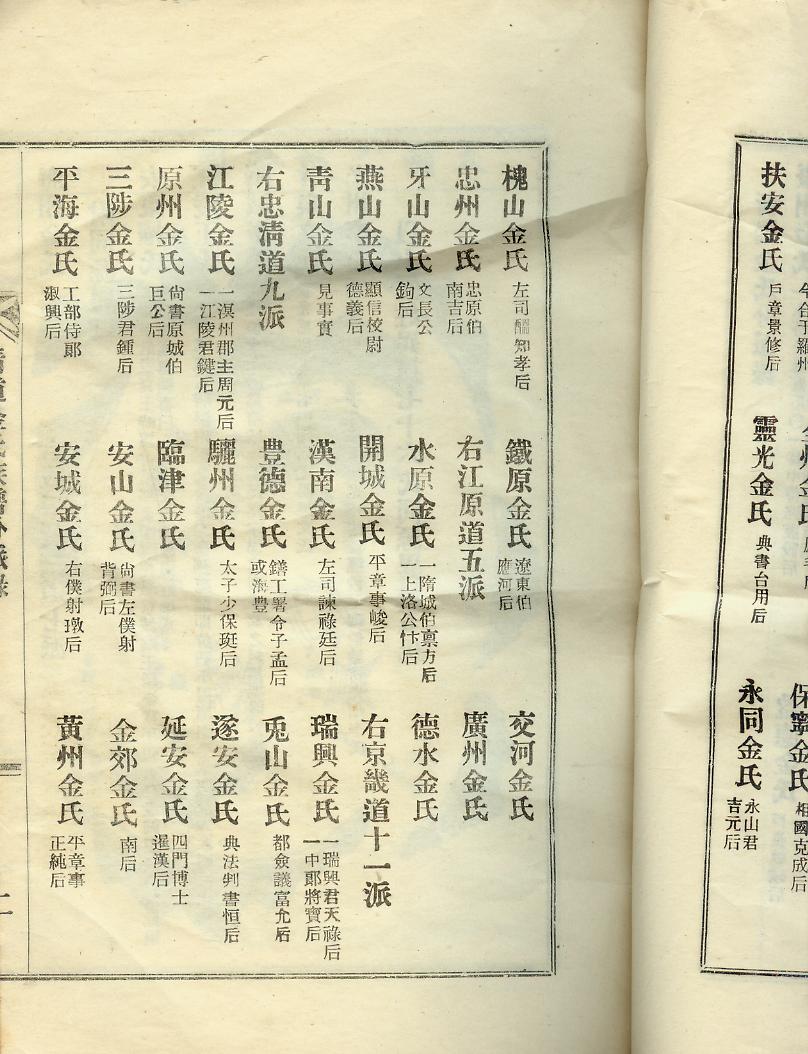 扶安金氏
戶章景修后
靈光金氏
典書台用后
保寧金氏
相國克成后
永同金氏
永山君
吉元后
槐山金氏
左司 知孝后
忠州金氏
忠原伯
南吉后
牙山金氏
文長公
鉤后
燕山金氏
顯信校尉
德義后
靑山金氏
見事實
右忠清道九派
江陵金氏
一溟州郡主周元后
一江陵君鍵后
原州金氏
尙書原城伯
巨公后
三陟金氏
三陟君鍾后
平海金氏
工部侍郞
淑興后
鐵原金氏
遼東伯
應河后
右江原道五派
水原金氏
一隋城伯禀方后
一上洛公忭后
開城金氏
平章事峻后
漢南金氏
左司諫祿廷后
豊德金氏
鐥工署令子孟后
或海豊
驪州金氏
太子少保珽后
臨津金氏
安山金氏
尙書左僕射
背弼后
安城金氏
右僕射璥后
交河金氏
廣州金氏
德水金氏
右京畿道十一派
瑞興金氏
一瑞興君天祿后
一中郞將寶后
兎山金氏
都僉議富允后
遂安金氏
典法判書恒后
延安金氏
四門博士
暹漢后
金郊金氏
南后
黃州金氏
平章事
正純后